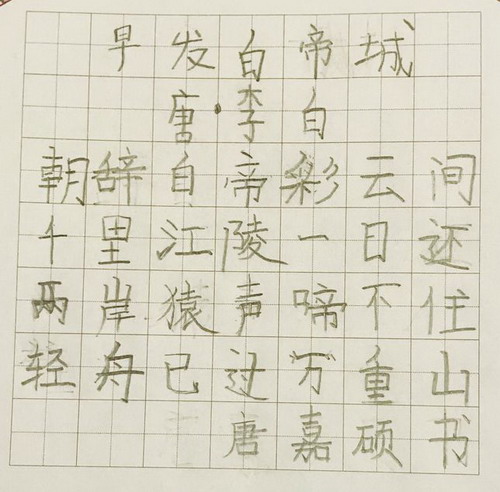 早发白帝城
唐·李白
朝辞白帝彩云间
千里江陵一日还
两岸猿声啼不住
轻舟已过万重山
唐嘉硕书